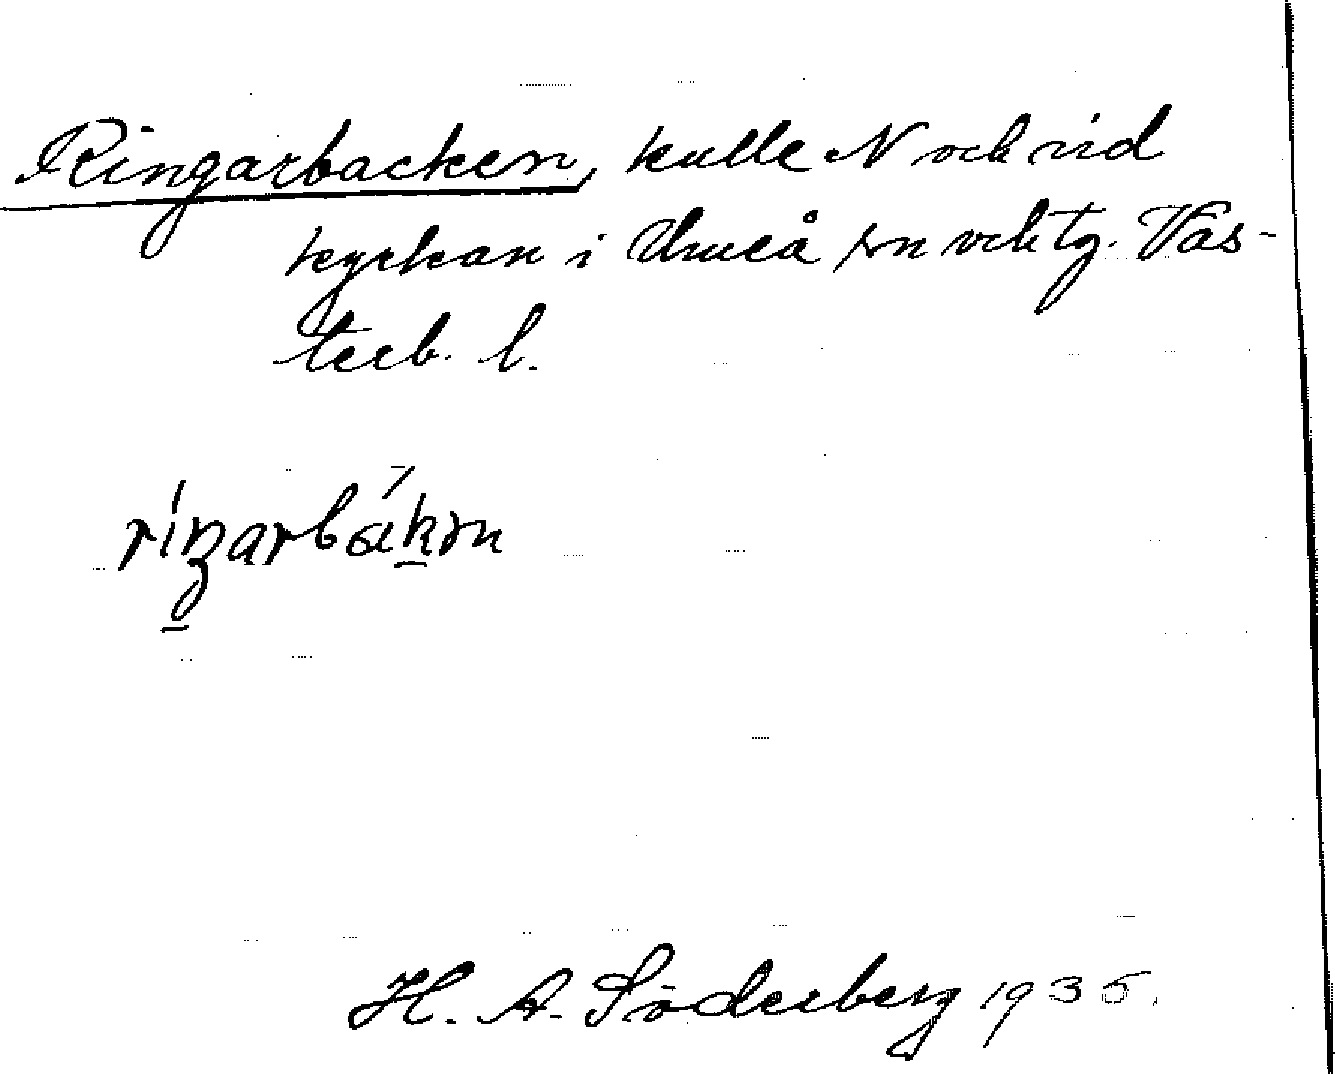 Ringarbacken, kulle N och vid
kyrkan i Umeå sn och tg. Väs-
terb. l.
H. A. Söderberg 1935.